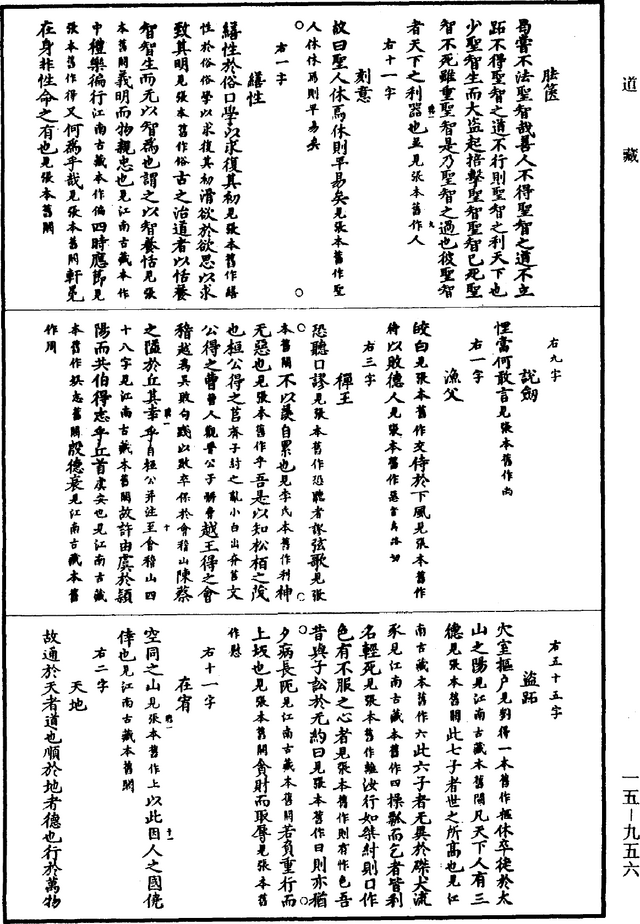 道藏
一五—九五六
胠篋
曷嘗不法聖智哉善人不得聖智之道不立
跖不得聖智之道不行則聖智之利天下也
少聖智生而大盜起掊擊聖智聖智已死聖
智不死雖重聖智是乃聖智之過也彼聖智
者天下之利器也並見張本舊作人
右十一字
刻意
故曰聖人休焉休則平易矣見張本舊作聖
人休休焉則平易矣
右一字
繕性
繕性於俗口學以求復其初見張本舊作繕
性於俗俗學以求復其初滑欲於欲思以求
致其明見張本舊作俗古之治道者以恬養
智智生而无以智為也謂之以智養恬見張
本舊闕義明而物親忠也見江南古藏本作
中禮樂徧行江南古藏本作偏四時應節見
張本舊作得又何為乎哉見張本舊闕軒冕
在身非性命之有也見張本舊闕
右九字
說劍
悝當何敢言見張本舊作尚
右一字
漁父
皎白見張本舊作交侍於下風見張本舊作
待以敗德人見張本舊作惡
右三字
禪王
恐聽口謬見張本舊作恐聽者謬弦歌見張
本舊闕不以美自累也見李氏本舊作利神
无惡也見張本舊作乎吾是以知松栢之茂
也桓公得之莒齊子紂之亂小白出奔莒文
公得之曹曹人觀晉公子骿脅越王得之會
稽越為吳敗勾踐以敗卒保於會稽山陳蔡
之隘於丘其幸乎自桓公并注至會稽山四
十八字見江南古藏本舊闕故許由虞於潁
陽而共伯得志乎丘首虞安也見江南古藏
本舊作娛志舊闕殷德衰見江南古藏本舊
作周
右五十五字
盜跖
穴室摳户見劉得一本舊作樞休卒徒於太
山之陽見江南古藏本舊闕凡天下人有三
德見張本舊闕此七子者世之所高也見江
南古藏本舊作六此六子者无異於磔犬流
豕見江南古藏本舊作四操瓢而乞者皆利
名輕死見張本舊作離汝行如桀紂則口作
色有不服之心者見張本舊作則有作色吾
昔與子訟於无約曰見張本舊作日則亦猶
夕病長阨見江南古藏本舊闕若負重行而
上坂也見張本舊闕貪財而取辱見張本舊
作慰
右十一字
在宥
空同之山見張本舊作上以此因人之國僥
倖也見江南古藏本舊闕
右二字
天地
故通於天者道也順於地者德也行於萬物